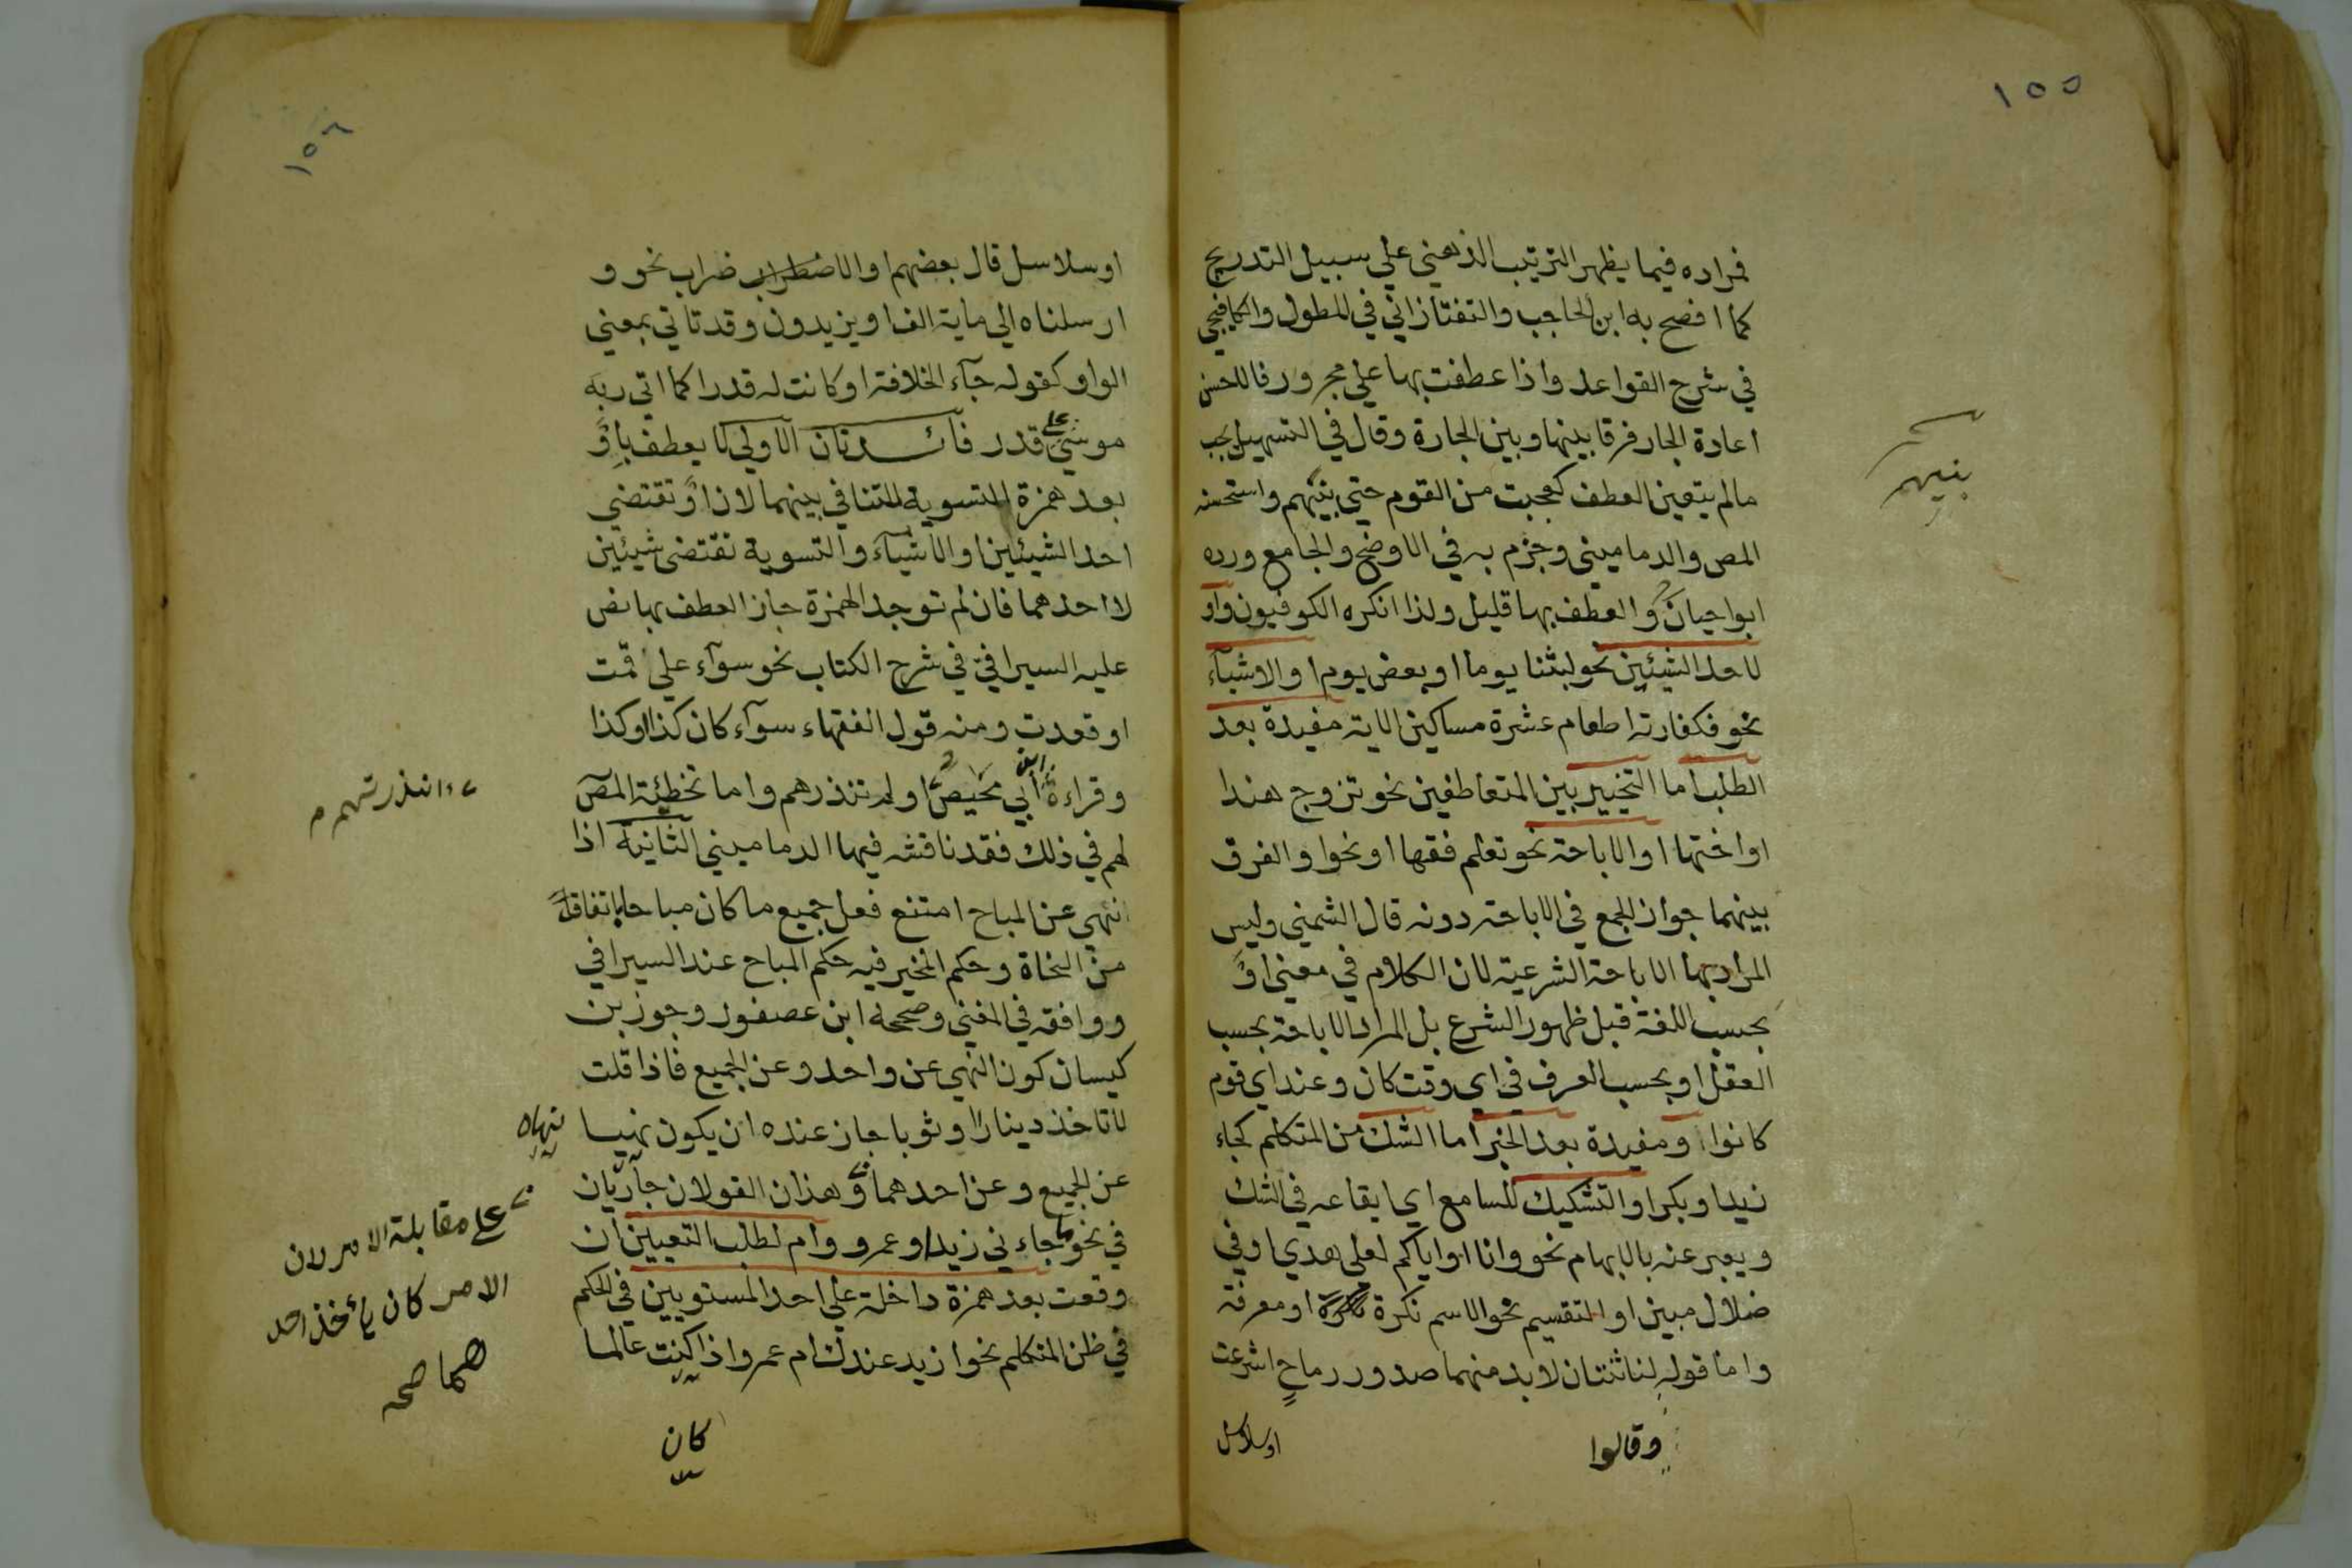 ١٥٥
فمراده فيما يظهر الترتيب الذهني علي سبيل التدريج
كما افصح به ابن الحاجب والتفتازاني في المطول والكافيجي
في شرح القواعد واذا عطفت بها علي مجرور فالاحسن
اعادة الجار فرقا بينها وبين الجارة وقال في التسهيل يجب
مالم يتعين العطف كعجبت من القوم حتي بنيهم واستحسنه
بنيهم
المص والدماميني وجزم به في الاوضح والجامع ورده
ابوا حيان والعطف بها قليل ولذا انكره الكوفيون واو
لاحد الشيئين نحو لبثنا يوما او بعض يوم او الاشيآء
نحو فكفارته اطعام عشرة مساكين الاية مفيدة بعد
الطلب اما التخيير بين المتعاطفين نحو تزوج هندا
او اختها او الاباحة نحو تعلم فقها او نحوا والفرق
بينهما جواز الجمع في الاباحة دونه قال الشمني وليس
المراد بها الاباحة الشرعية لان الكلام في معني اوْ
بحسب اللغة قبل ظهور الشرع بل المراد الاباحة بحسب
العقل او بحسب العرف في اي وقت كان وعند اي قوم
كانوا ومفيدة بعد الخبر اما الشك من المتكلم كجاء
زيد او بكر او التشكيك للسامع اي ايقاعه في الشك
ويعبر عنه بالابهام نحو وانا او اياكم لعلي هدي او في
ضلال مبين او التقسيم نحو الاسم نكرة او معرفة
واما قوله لنا ثنتان لابد منهما صدور رماحٍ اشرعت
وقالوا
او سلاسل
١٥٦
او سلاسل قال بعضهم او الاضطراب ضراب نحو و
ارسلناه الي ماية الف او يزيدون وقد تاتي بمعني
الواو كقوله جآء الخلافة او كانت له قدرا كما اتي ربه
موسي علي قدر فائدتان الاولي لا يعطف باوْ
بعد همزة التسوية للتنافي بينهما لان اوْ تقتضي
احد الشيئين او الاشيآء والتسوية تقتضي شيئين
لا احدهما فان لم توجد الهمزة جاز العطف بها نص
عليه السيرافي في شرح الكتاب نحو سوآء علي قمت
او قعدت ومنه قول الفقهاء سوآء كان كذا او كذا
وقراءة ابن ابي محيص او لم تنذرهم واما تخطيئة المص
ءانذرتهم م
لهم في ذلك فقد ناقشه فيها الدماميني الثانية اذا
نهي عن المباح امتنع فعل جميع ما كان مباحا باتفاق
من النحاة وحكم المخير فيه حكم المباح عند السيرافي
ووافقه في المغني وصححه ابن عصفور وجوز بن
كيسان كون النهي عن واحد وعن الجميع فاذا قلت
لاتاخذ دينارا او ثوبا جاز عنده ان يكون نهيا
نهاه
عن الجميع وعن احدهما وهذان القولان جاريان
علي مقابلة الامر لان
الامر كان ياخذ احد
هما صحه
في نحو ما جاءني زيد او عمرو وام لطلب التعيين ان
وقعت بعد همزة داخلة علي احد المستويين في الحكم
في ظن المتكلم نحو ازيد عندك ام عمرو اذا كنت عالما
كان